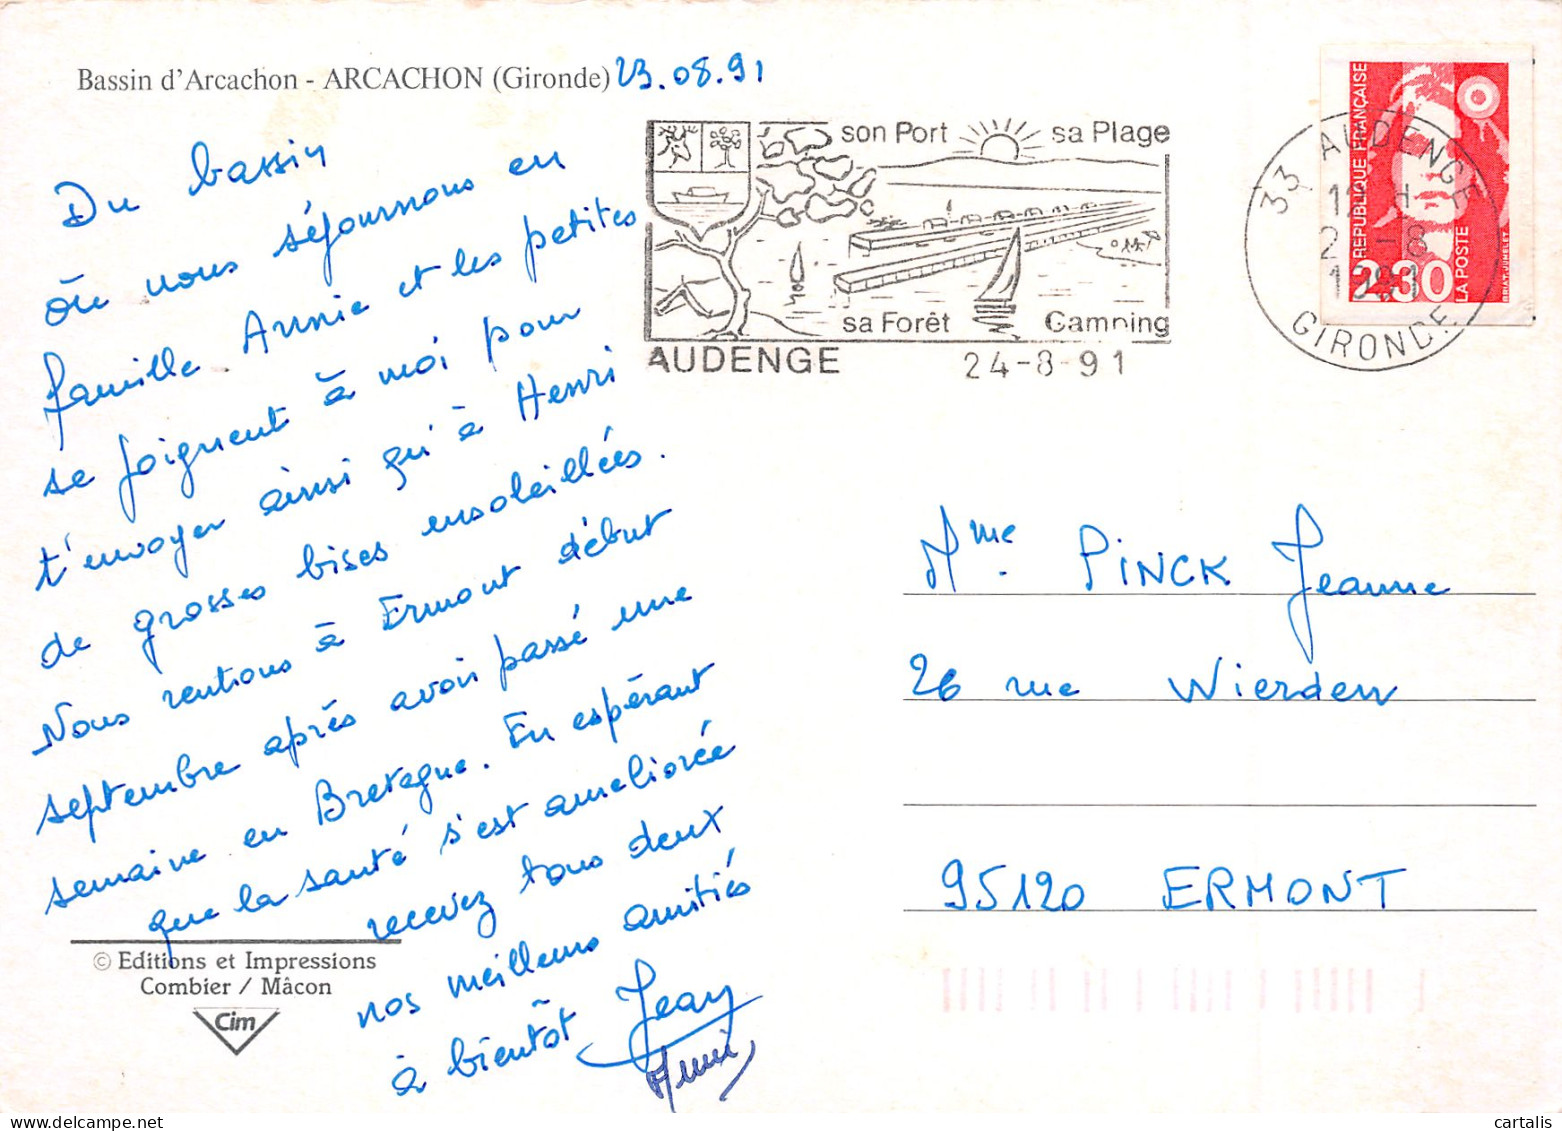 Bassin d'Arcachon - ARCACHON (Gironde) 23.08.91
Du bassin
où nous séjournons en
famille. Annie et les petites
se joignent à moi pour
t'envoyer ainsi qu'à Henri
de grosses bises ensoleillées.
Nous rentrons à Ermont début
septembre après avoir passé une
semaine en Bretagne. En espérant
que la santé s'est ameliorée
recevez tous deux
nos meilleures amitiés
à bientôt Jean
Annie
© Editions et Impressions
Combier / Mâcon
Cim
son Port sa Plage
sa Forêt Camping
AUDENGE 24-8-91
33 AUDENGE
12 H
2 -8
1991
GIRONDE
REPUBLIQUE FRANÇAISE
2.30
LA POSTE
BRIAT-JUMELET
Mme. PINCK Jeanne
26 rue Wierden
95120 ERMONT
cartalis
www.delcampe.net